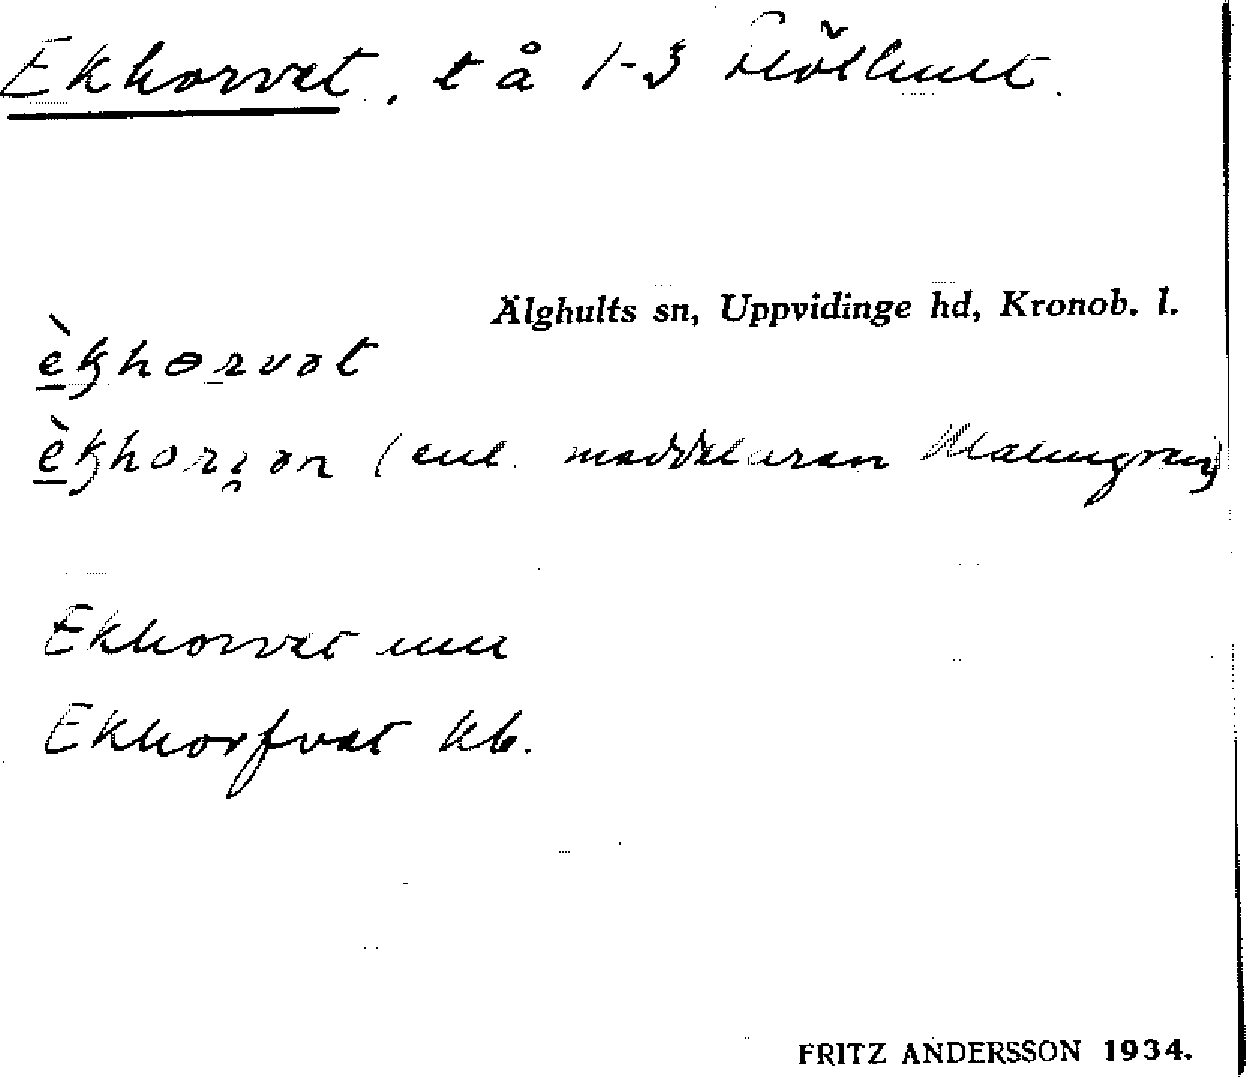 Ekhorvet, t å 1-3 Flöthult.
Älghults sn, Uppvidinge hd, Kronob. l.
èkhorvət
èkhor ən (enl. meddelaren Malmgren)
Ekhorvet nu
Ekhorfvet kb.
FRITZ ANDERSSON 1934.